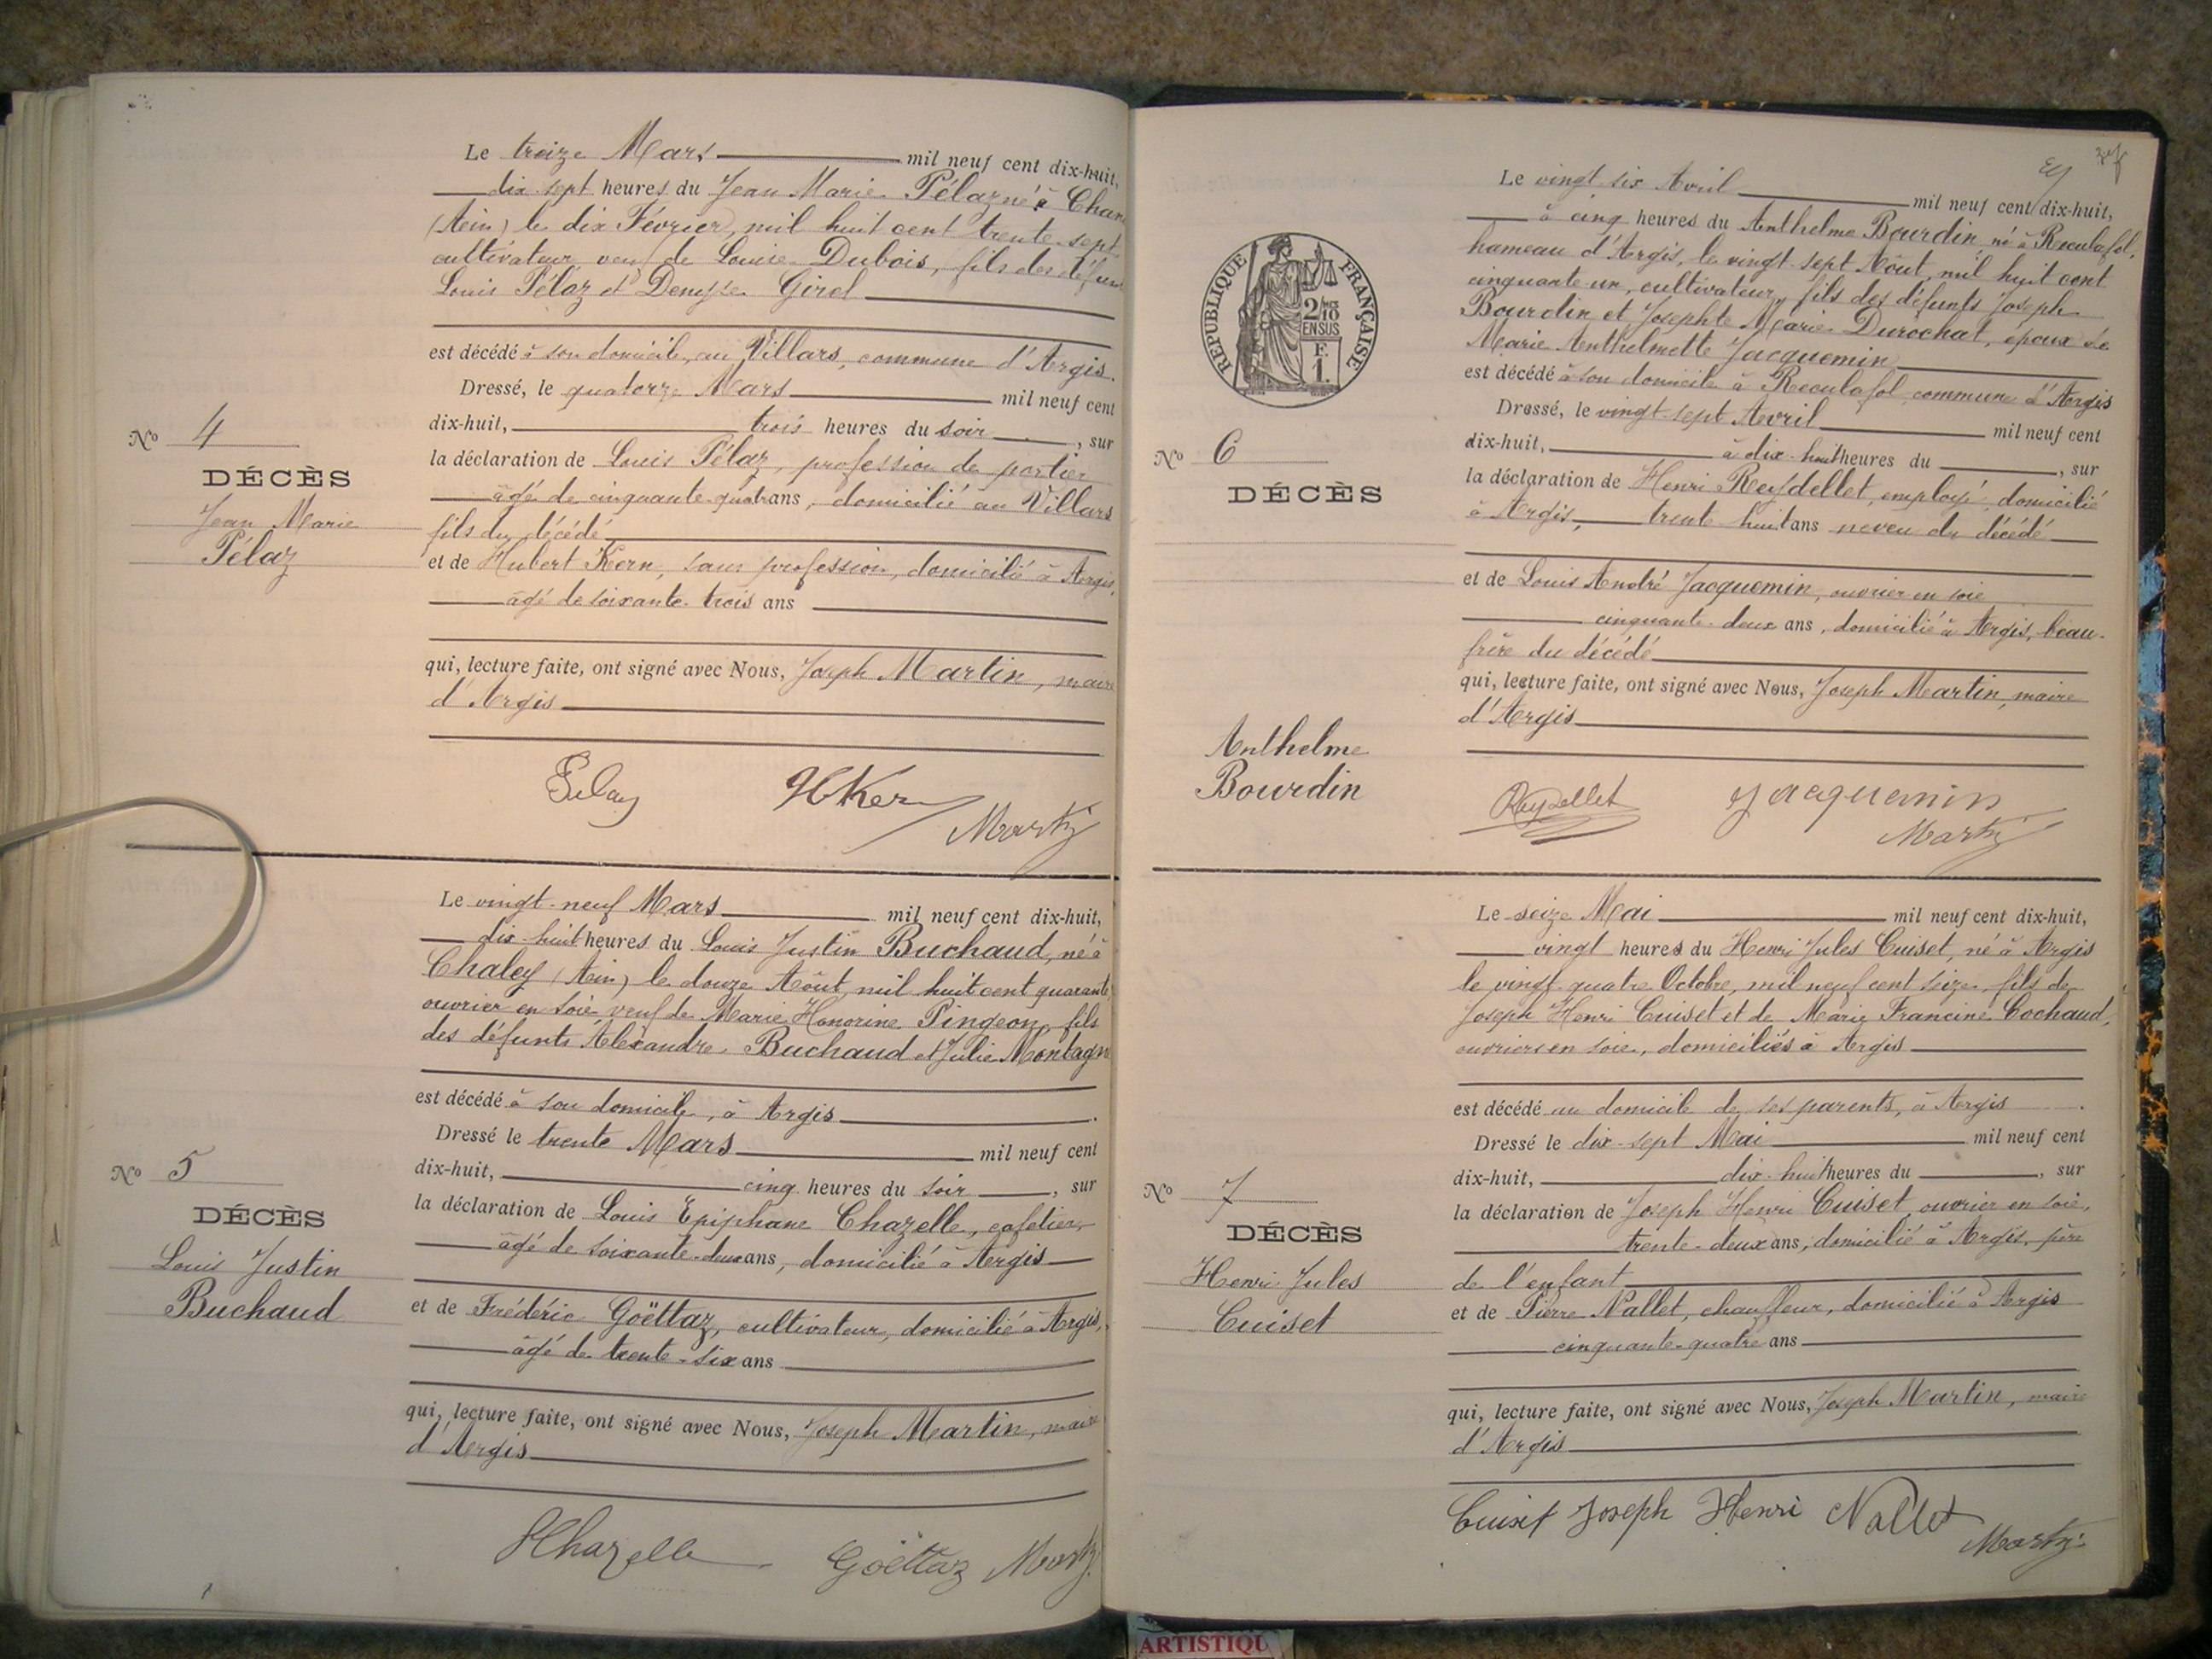 Le treize Mars mil neuf cent dix-huit,
dix sept heures du Jean Marie Pélaz né à Chan
(Ain) le dix Février, mil huit cent trente-sept
cultivateur, veuf de Louise Dubois, fils des défun
Louis Pélaz et Denyse Girel
est décédé à son domicile, au Villars, commune d'Argis.
Dressé, le quatorze Mars mil neuf cent
dix-huit, trois heures du soir, sur
la déclaration de Louis Pélaz, profession de portier
âgé de cinquante-quatre ans, domicilié au Villars
fils du décédé
et de Hubert Kern, sans profession, domicilié à Argis,
âgé de soixante-trois ans
qui, lecture faite, ont signé avec Nous, Joseph Martin, maire
d'Argis
No 4
DÉCÈS
Jean Marie
Pélaz
Pelaz HKern
Martin
Le vingt-neuf Mars mil neuf cent dix-huit,
dix-huit heures du Louis Justin Buchaud, né à
Chaley (Ain) le douze Août, mil huit cent quarante
ouvrier en soie, veuf de Marie Honorine Pingeon, fils
des défunts Alexandre Buchaud et Julie Montagn
est décédé à son domicile, à Argis.
Dressé le trente Mars mil neuf cent
dix-huit, cinq heures du soir, sur
la déclaration de Louis Epiphane Chazelle, cafetier,
âgé de soixante-deux ans, domicilié à Argis
et de Frédéric Goëttaz, cultivateur, domicilié à Argis,
âgé de trente-six ans
qui, lecture faite, ont signé avec Nous, Joseph Martin, maire
d'Argis
No 5
DÉCÈS
Louis Justin
Buchaud
Chazelle Goëttaz Martin
Le vingt-six Avril mil neuf cent dix-huit,
à cinq heures du Anthelme Bourdin né à Reculafol,
hameau d'Argis, le vingt-sept Août, mil huit cent
cinquante-un, cultivateur, fils des défunts Joseph
Bourdin et Josephte Marie Durochat, époux de
Marie Anthelmette Jacquemin
est décédé à son domicile à Reculafol, commune d'Argis
Dressé, le vingt-sept Avril mil neuf cent
dix-huit, à dix-huit heures du, sur
la déclaration de Henri Reydellet, employé, domicilié
à Argis, trente huit ans neveu du décédé
et de Louis André Jacquemin, ouvrier en soie
cinquante-deux ans, domicilié à Argis, beau-
frère du décédé
qui, lecture faite, ont signé avec Nous, Joseph Martin, maire
d'Argis
RÉPUBLIQUE FRANÇAISE
2/10
EN SUS
F.
1.
No 6
DÉCÈS
Anthelme
Bourdin
Reydellet Jacquemin
Martin
Le seize Mai mil neuf cent dix-huit,
vingt heures du Henri Jules Cuiset, né à Argis
le vingt-quatre Octobre, mil neuf cent seize, fils de
Joseph Henri Cuiset et de Marie Francine Cochaud,
ouvriers en soie, domiciliés à Argis
est décédé au domicile de ses parents, à Argis.
Dressé le dix-sept Mai mil neuf cent
dix-huit, dix-huit heures du, sur
la déclaration de Joseph Henri Cuiset, ouvrier en soie,
trente-deux ans, domicilié à Argis, père
de l'enfant
et de Pierre Nallet, chauffeur, domicilié à Argis
cinquante-quatre ans
qui, lecture faite, ont signé avec Nous, Joseph Martin, maire
d'Argis
No 7
DÉCÈS
Henri Jules
Cuiset
Cuiset Joseph Henri Nallet
Martin
ARTISTIQU